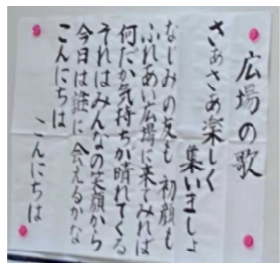 広場の歌
さぁさあ楽しく
集いましょ
なじみの友も 初顔も
ふれあい広場に来てみれば
何だか気持ちが晴れてくる
それはみんなの笑顔から
今日は誰に会えるかな
こんにちは
こんにちは